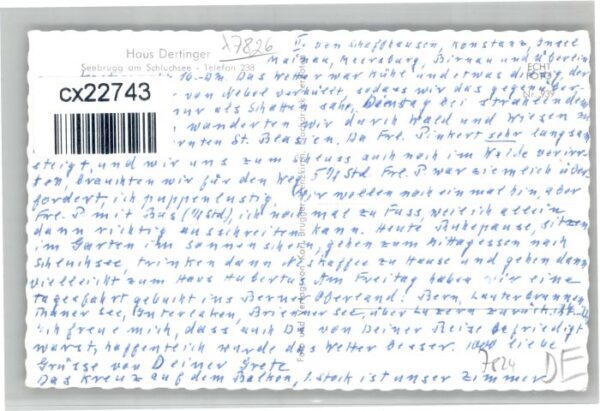 Haus Dertinger
Seebrugg am Schluchsee - Telefon 238
λ7826
II. von Schaffhausen, Konstanz, Insel
Mainau, Meersburg, Birnau und überlin
16.- DM. Das Wetter war kühl und etwas
von Nebel verhüllt, sodass wir das gegenüber-
nur als Schatten sahn. Dienstag bei strahlendem
wanderten wir durch Wald und Wiesen zu
rnten St. Blasien. Da Frl. Pinkert sehr langsam
steigt, und wir uns zum Schluss auch noch im Walde verirr-
ten, brauchten wir für den Weg 5½ Std. Frl. P. war ziemlich über
fordert, ich puppenlustig. Wir wollen noch einmal hin, aber
Frl. P. mit Bus (½ Std), ich noch mal zu Fuss, weil ich allein
dann richtig ausschreiten kann. Heute Ruhepause, sitzen
im Garten im Sonnenschein, gehen zum Mittagessen nach
Schluchsee, trinken dann N.kaffee zu Hause und gehen dann
vielleicht zum Haus Hubertus. Am Freitag haben wir eine
Tagesfahrt gebucht ins Berner Oberland: Bern, Lauterbrunnen,
Thuner See, Interlaken, Brienzer See, über Luzern zurück.
Ich freue mich, dass auch Du von Deiner Reise befriedigt
warst, hoffentlich wurde das Wetter besser. 1000 liebe
Grüsse von Deiner Grete
Das Kreuz auf dem Balkon, 1. Stock ist unser Zimmer
cx22743
ECHT
FOTO
7824
DE